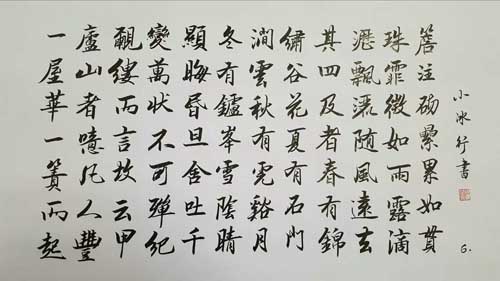 簷注砌纍累如貫
珠霏微如雨露滴
瀝飄灑隨風遠去
其四及者春有錦
繡谷花夏有石門
澗雲秋有虎谿月
冬有鑪峯雪陰晴
顯晦昏旦含吐千
變萬狀不可殫紀
覼縷而言故云甲
廬山者噫凡人豐
一屋華一簣而起
小冰行書
6.